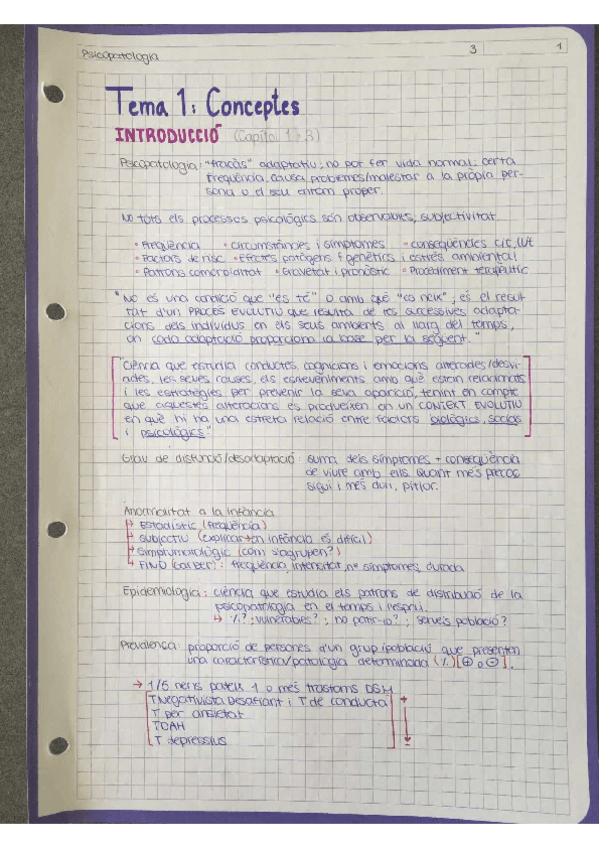 Psicopatologia 3 1
Tema 1: Conceptes
INTRODUCCIÓ (Capítol 1 i 3)
Psicopatologia: "fracàs" adaptatiu; no por fer vida normal. certa
freqüència, causa problemes/malestar a la pròpia per-
sona o el seu entorn proper.
No tots els processos psicològics són observables, subjectivitat
• Freqüència • circumstàncies i símptomes • conseqüències C/C, L/t
• Factors de risc • Efectes patògens f genètics i estrés ambiental
• Patrons comorbiditat • Gravetat i pronòstic • Procediment terapèutic
"No és una condició que "es té" o amb què "es neix", és el resul
tat d'un PROCÉS EVOLUTIU que resulta de les successives adapta-
cions dels individus en els seus ambients al llarg del temps,
on cada adaptació proporciona la base per la següent."
"Ciència que estudia conductes, cognicions i emocions alterades/desvi-
ades, les seves causes, els esdeveniments amb què estan relacionats
i les estratègies per prevenir la seva aparició, tenint en compte
que aquestes alteracions es produeixen en un CONTEXT EVOLUTIU
en què hi ha una estreta relació entre factors biològics, socials
i psicològics"
Grau de disfunció/desadaptació: suma dels símptomes + conseqüència
de viure amb ells. Quant més precoç
sigui i més duri, pitjor.
Anormalitat a la infància
→ Estadístic (freqüència)
→ Subjectiu (explicar → en infància és difícil)
→ Simptomatològic (com s'agrupen?)
→ FIND (Barber): freqüència, intensitat, nº símptomes, durada
Epidemiologia: ciència que estudia els patrons de distribució de la
psicopatologia en el temps i l'espai.
↳ %?; vulnerables?; no patir-lo?; serveis població?
Prevalença: proporció de persones d'un grup/població que presenten
una característica/patologia determinada (%) [⊕ o ⊖].
→ 1/5 nens pateix 1 o més trastorns DSM
T Negativista Desafiant i T de conducta +
T per ansietat
TDAH
T depressius -